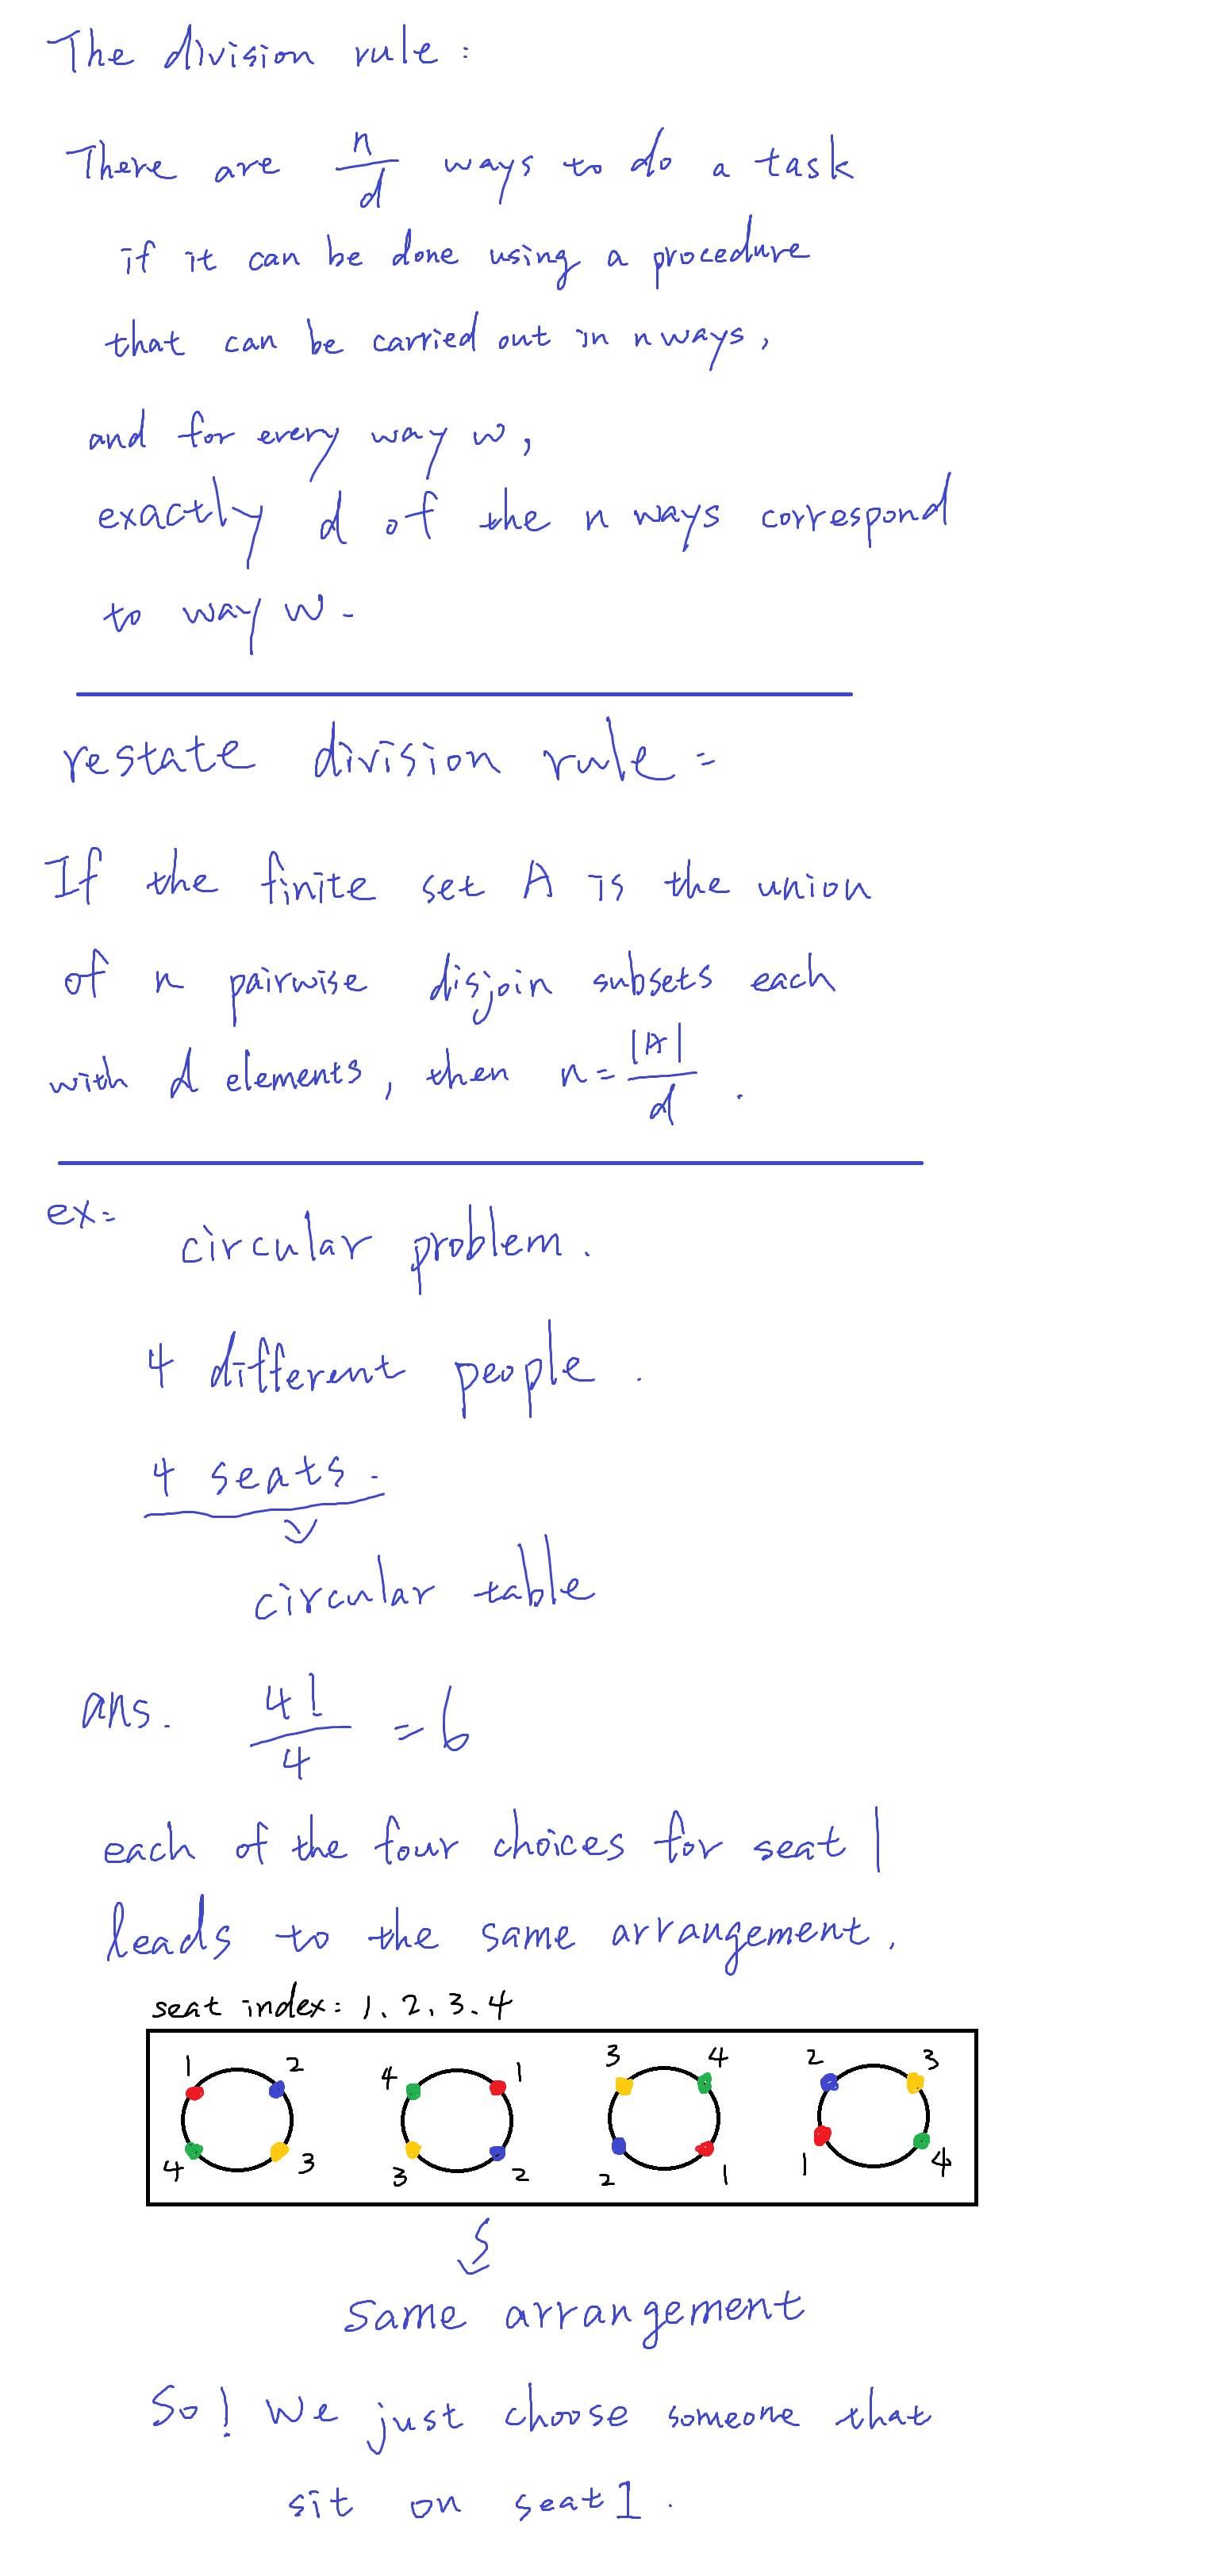 The division rule:
There are n/d ways to do a task
if it can be done using a procedure
that can be carried out in n ways,
and for every way w,
exactly d of the n ways correspond
to way w.
restate division rule:
If the finite set A is the union
of n pairwise disjoin subsets each
with d elements, then n = |A|/d .
ex:
circular problem.
4 different people.
4 seats.
circular table
ans. 4!/4 = 6
each of the four choices for seat 1
leads to the same arrangement.
seat index: 1、2、3、4
1 2 4 1 3 4 2 3
4 3 3 2 2 1 1 4
same arrangement
So! We just choose someone that
sit on seat 1.